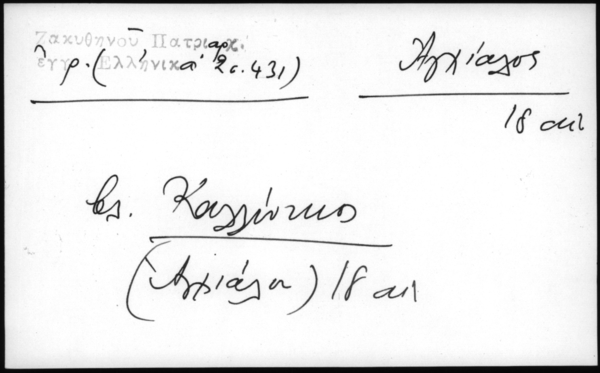 Ζακυθηνοῦ Πατριαρχ.
ἔγγ. Ἑλληνικὰ
ρ. ( α' 2 σ. 431)
Ἀγχίαλος
18 αι
βλ. Καλλίνικος
(Ἀγχιάλου) 18 αι